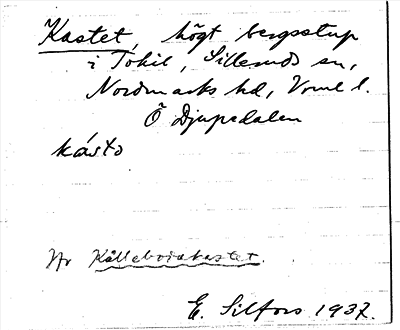 Kastet, högt bergsstup
i Tokil, Sillerud sn,
Nordmarks hd, Vrml l.
Ö Djupedalen
kásto
Jfr Kållebodakastet.
E. Silfors 1937.